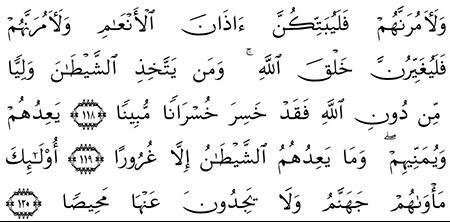 وَلَأَمُرَنَّهُمْ فَلَيُبَتِّكُنَّ ءَاذَانَ الْأَنْعَٰمِ وَلَأَمُرَنَّهُمْ
فَلَيُغَيِّرُنَّ خَلْقَ اللَّهِ ۚ وَمَن يَتَّخِذِ الشَّيْطَٰنَ وَلِيًّا
مِّن دُونِ اللَّهِ فَقَدْ خَسِرَ خُسْرَانًا مُّبِينًا ١١٨ يَعِدُهُمْ
وَيُمَنِّيهِمْ ۖ وَمَا يَعِدُهُمُ الشَّيْطَٰنُ إِلَّا غُرُورًا ١١٩ أُوْلَٰئِكَ
مَأْوَىٰهُمْ جَهَنَّمُ وَلَا يَجِدُونَ عَنْهَا مَحِيصًا ١٢٠